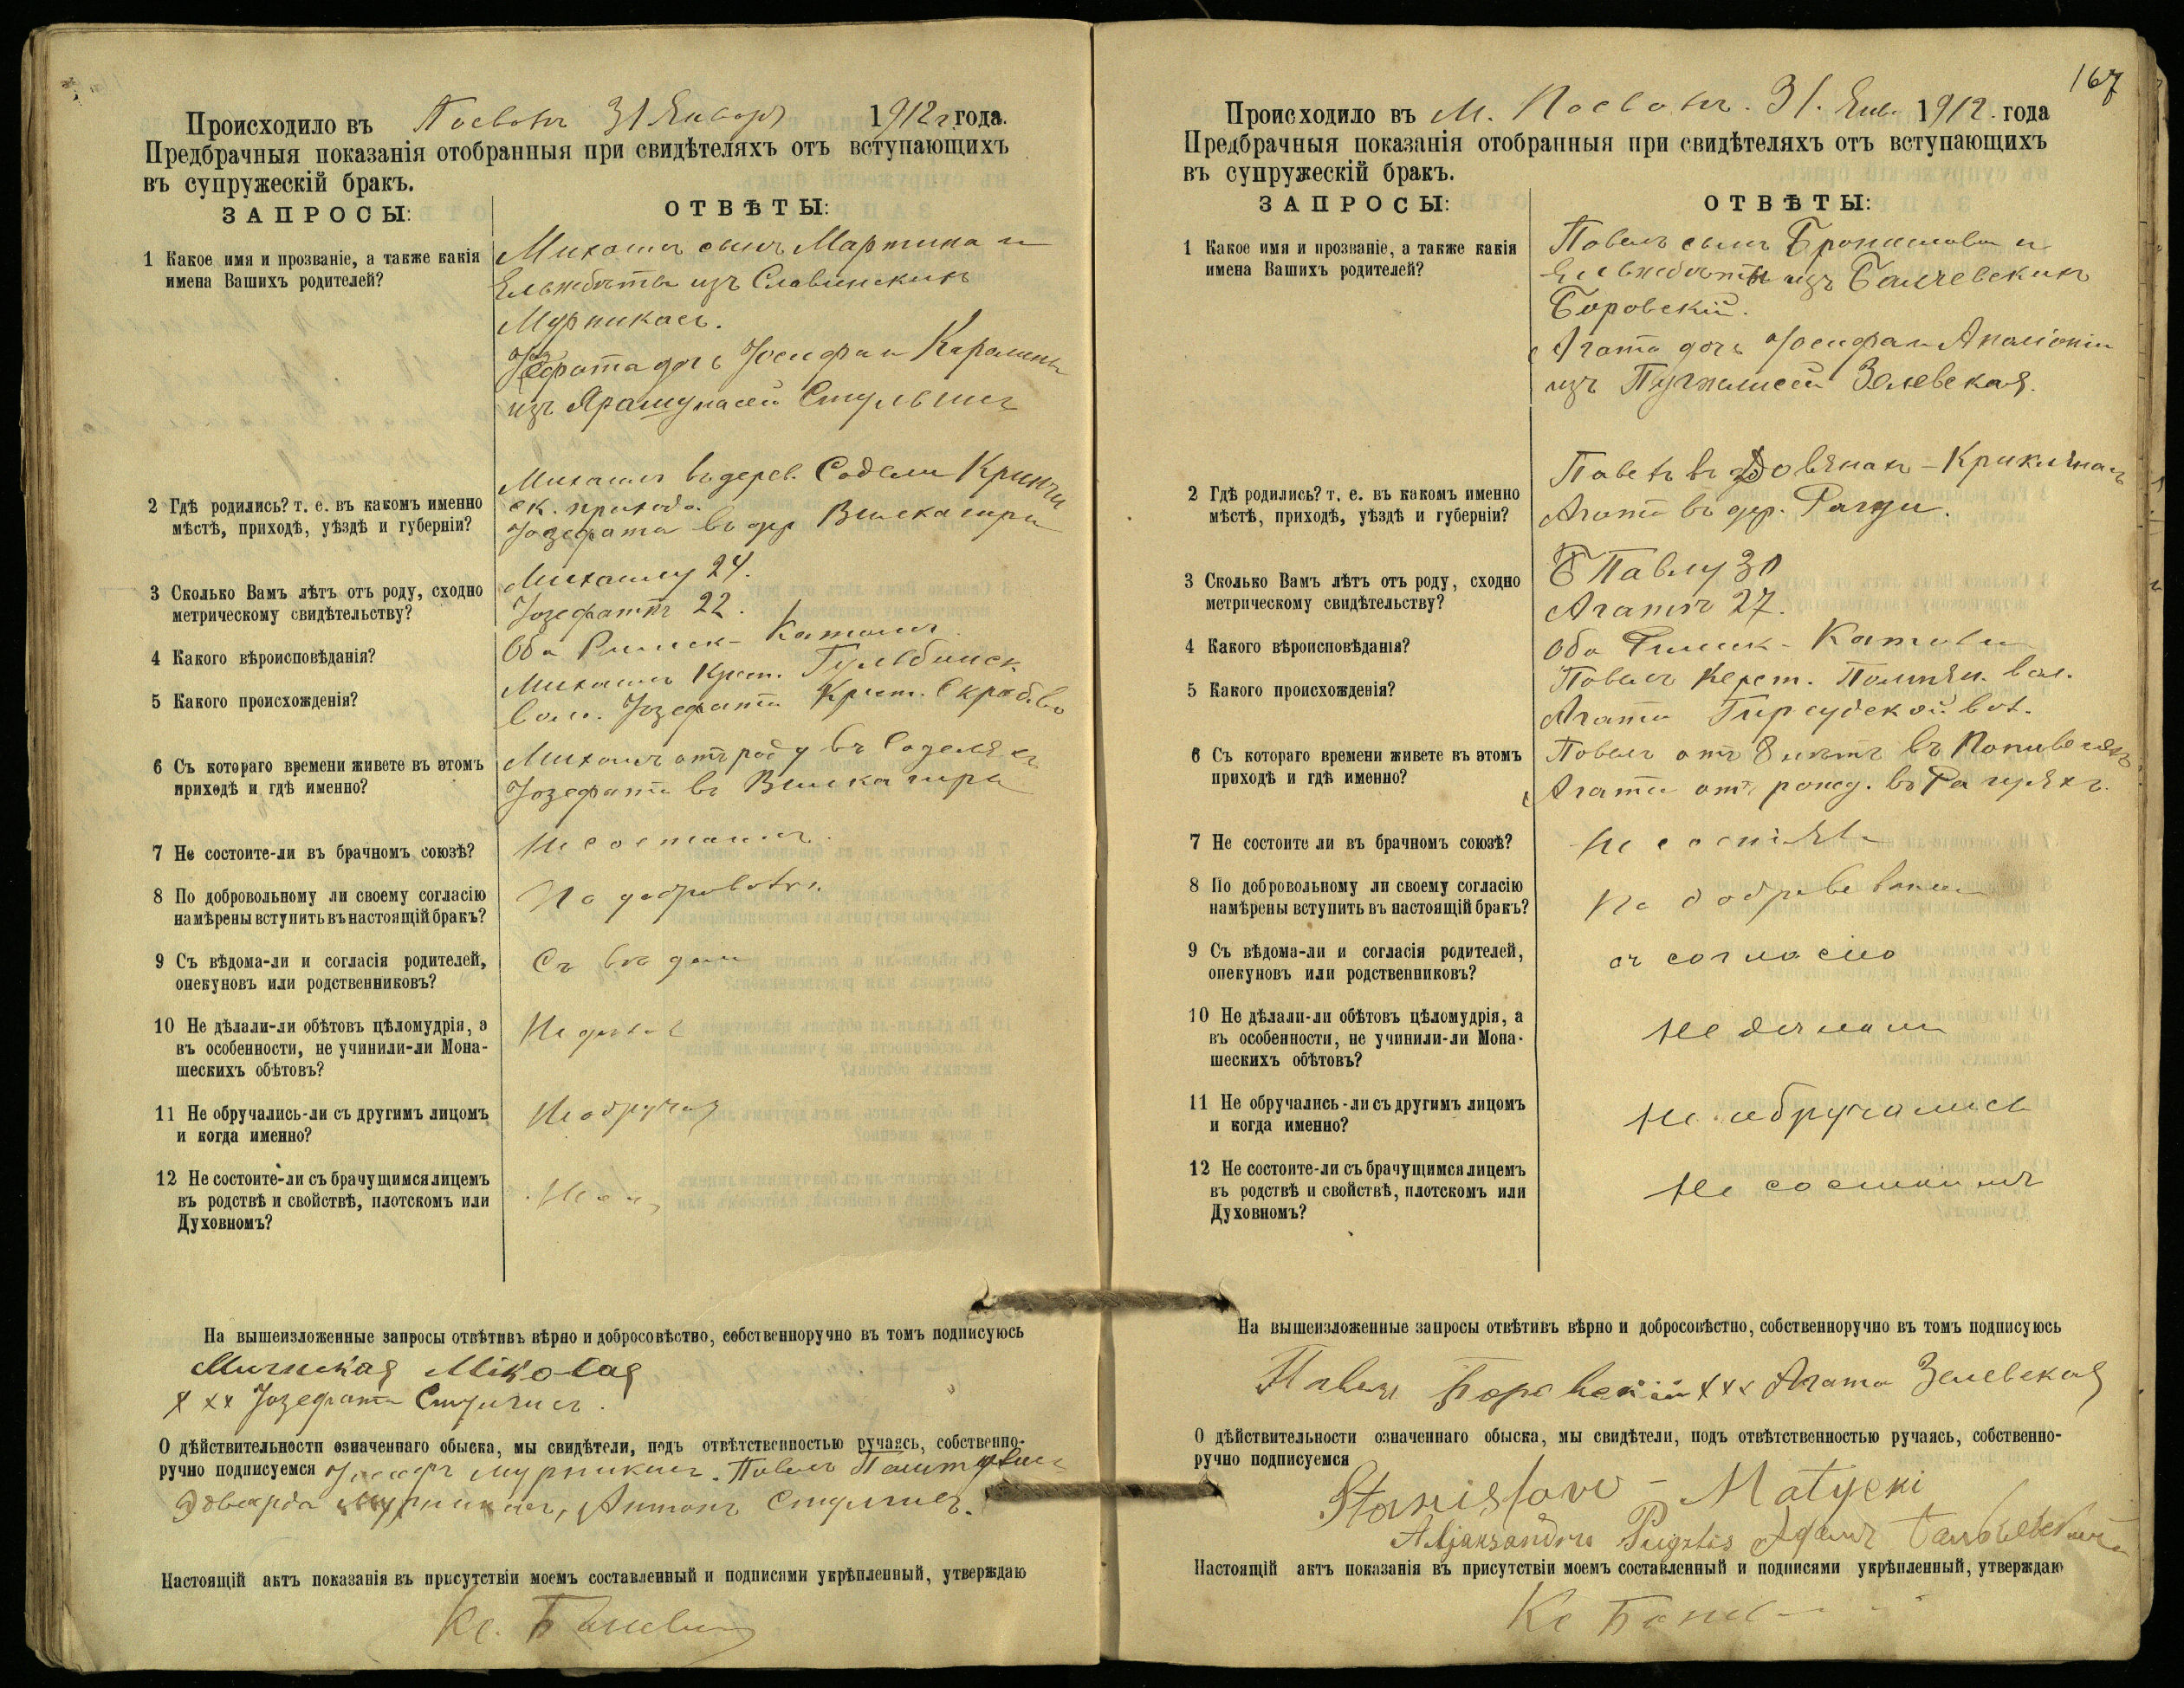 Происходило въ Посволь 31 Января 1912 г года.
Предбрачныя показанія отобранныя при свидѣтеляхъ отъ вступающихъ
въ супружескій бракъ.
ЗАПРОСЫ:
ОТВѢТЫ:
1 Какое имя и прозваніе, а также какія
имена Вашихъ родителей?
Михаилъ сынъ Мартина и
Ельжбѣты изъ Славинскихъ
Мурникасъ.
Іозефата дочь Іосифа и Каролины
изъ
2 Гдѣ родились? т. е. въ какомъ именно
мѣстѣ, приходѣ, уѣздѣ и губерніи?
Михаилъ въ дерев. Содели Кринчи
ск. прихода.
Іозефата въ дер
3 Сколько Вамъ лѣтъ отъ роду, сходно
метрическому свидѣтельству?
Михаилу 24.
Іозефатѣ 22.
4 Какого вѣроисповѣданія?
Оба Римск-Католич
5 Какого происхожденія?
Михаилъ Крест. Гульбинск
вол. Іозефата Крест.
6 Съ котораго времени живете въ этомъ
приходѣ и гдѣ именно?
Михаилъ отъ роду въ Соделяхъ
Іозефата въ
7 Не состоите-ли въ брачномъ союзѣ?
Не состоимъ.
8 По добровольному ли своему согласію
намѣрены вступить въ настоящій бракъ?
По добровольн.
9 Съ вѣдома-ли и согласія родителей,
опекуновъ или родственниковъ?
Съ вѣдома
10 Не дѣлали-ли обѣтовъ цѣломудрія, а
въ особенности, не учинили-ли Мона-
шескихъ обѣтовъ?
Не
11 Не обручались-ли съ другимъ лицомъ
и когда именно?
Не
12 Не состоите-ли съ брачущимся лицемъ
въ родствѣ и свойствѣ, плотскомъ или
Духовномъ?
На вышеизложенные запросы отвѣтивъ вѣрно и добросовѣстно, собственноручно въ томъ подписуюсь
ххх Іозефата
О дѣйствительности означеннаго обыска, мы свидѣтели, подъ отвѣтственностью ручаясь, собственно-
ручно подписуемся Іосифъ Мурникасъ. Павелъ
Эдвардъ Мурникасъ, Антонъ
Настоящій актъ показанія въ присутствіи моемъ составленный и подписями укрѣпленный, утверждаю
Кс.
167
Происходило въ м. Посволь. 31. Янв. 1912. года
Предбрачныя показанія отобранныя при свидѣтеляхъ отъ вступающихъ
въ супружескій бракъ.
ЗАПРОСЫ:
ОТВѢТЫ:
1 Какое имя и прозваніе, а также какія
имена Вашихъ родителей?
Павелъ сынъ Бронислава и
Ельжбѣты изъ
Боровскій.
Агата дочь Іосифа и Аполоніи
изъ Зелевская.
2 Гдѣ родились? т. е. въ какомъ именно
мѣстѣ, приходѣ, уѣздѣ и губерніи?
Павелъ въ
Агата въ дер.
3 Сколько Вамъ лѣтъ отъ роду, сходно
метрическому свидѣтельству?
Павлу 30
Агатѣ 27.
4 Какого вѣроисповѣданія?
Оба Римск-Католи
5 Какого происхожденія?
Павелъ Крест. вол.
Агата Гирсудской вол.
6 Съ котораго времени живете въ этомъ
приходѣ и гдѣ именно?
Павелъ отъ 8 лѣтъ въ
Агата отъ рожд. въ
7 Не состоите ли въ брачномъ союзѣ?
Не
8 По добровольному ли своему согласію
намѣрены вступить въ настоящій бракъ?
По
9 Съ вѣдома-ли и согласія родителей,
опекуновъ или родственниковъ?
10 Не дѣлали-ли обѣтовъ цѣломудрія, а
въ особенности, не учинили-ли Мона-
шескихъ обѣтовъ?
Не дѣлали
11 Не обручались-ли съ другимъ лицомъ
и когда именно?
Не обручались
12 Не состоите-ли съ брачущимся лицемъ
въ родствѣ и свойствѣ, плотскомъ или
Духовномъ?
Не состоимъ
На вышеизложенные запросы отвѣтивъ вѣрно и добросовѣстно, собственноручно въ томъ подписуюсь
Боровскій ххх Агата Зелевская
О дѣйствительности означеннаго обыска, мы свидѣтели, подъ отвѣтственностью ручаясь, собственно-
ручно подписуемся
Stanisłow - Matyeki
Aljaksandru Pugztis Адамъ
Настоящій актъ показанія въ присутствіи моемъ составленный и подписями укрѣпленный, утверждаю
Кс